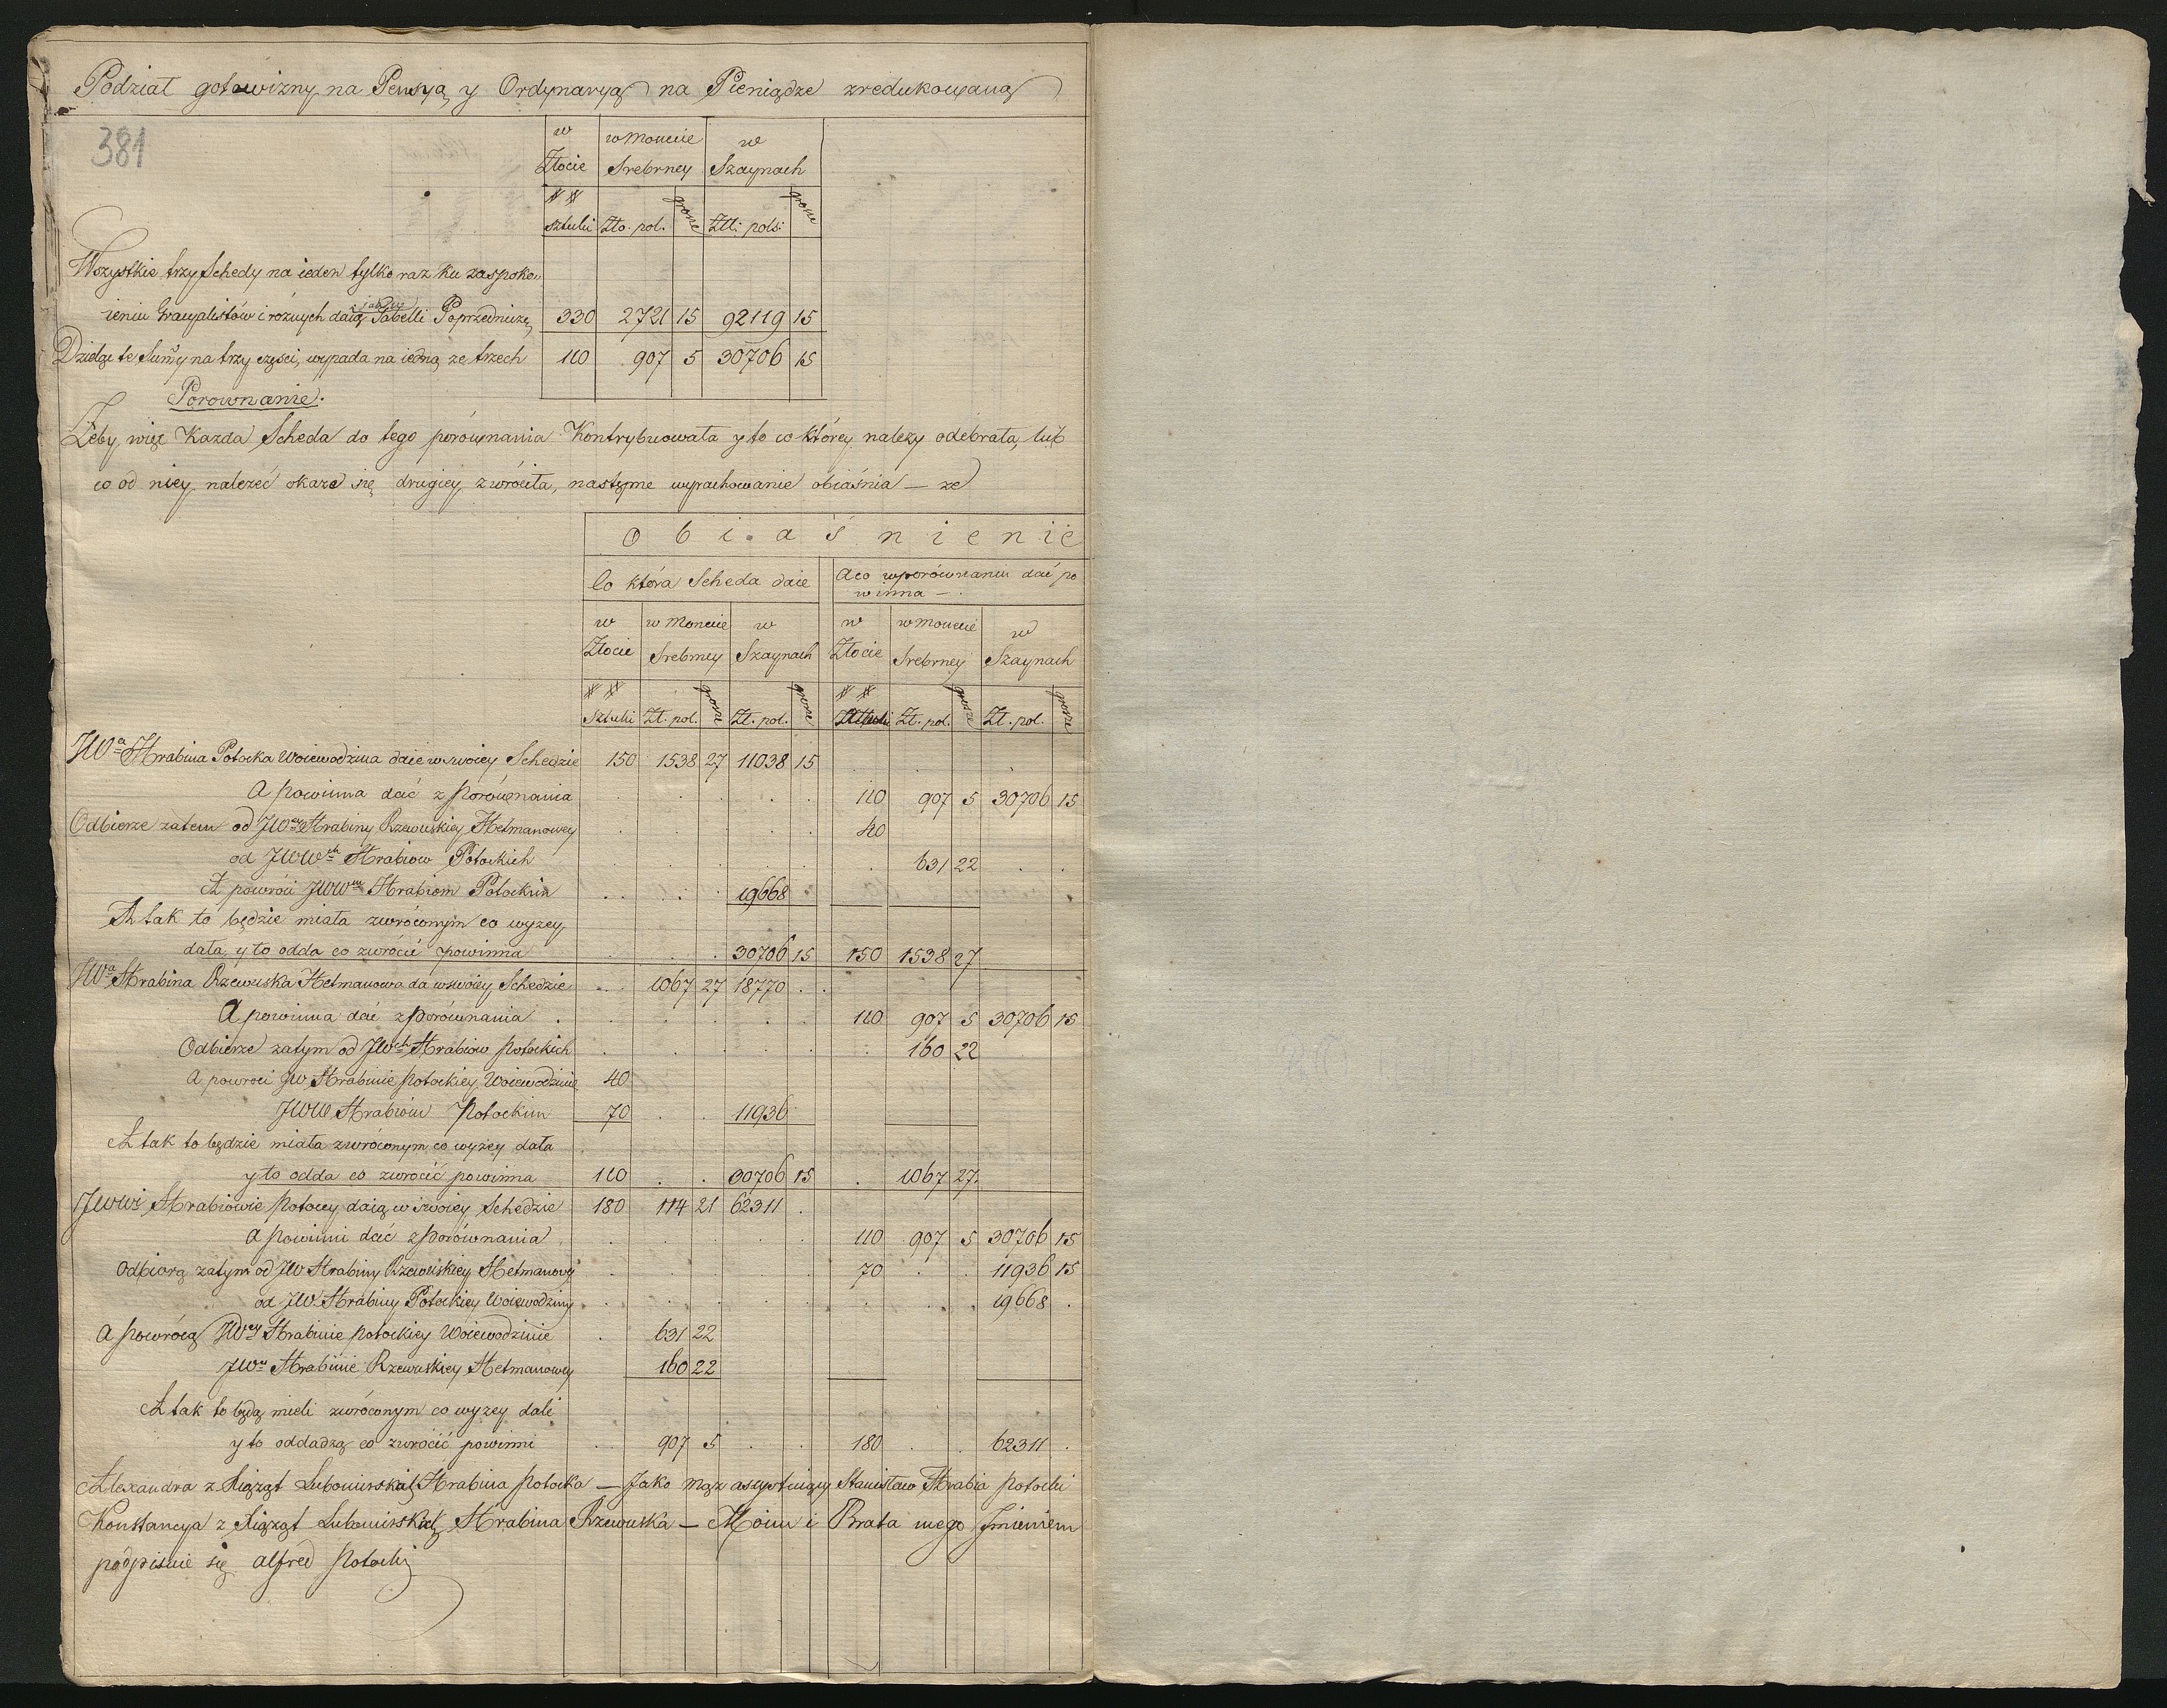 Podział gotowizny na Pensyą y Ordynaryą na Pieniądze zredukowaną
381
w Złocie | w Monecie Srebrney | w Szaynach
## sztuki | Zło. pol. | grosze | Zł: pols: | grosze
Wszystkie trzy Schedy na ieden tylko raz ku zaspoko-
ieniu Gracyalistów i różnych daią jak w Tabelli Poprzedniczey 330 2721 15 92119 15
Dzieląc te Sum̃y na trzy części, wypada na iedną ze trzech 110 907 5 30706 15
Porownanie.
Żeby więc Kazda Scheda do tego porównania Kontrybuowała y to co którey nalezy odebrała, lub
co od niey nalezeć okaze się drugiey, zwróciła, następne wyrachowanie obiaśnia — ze
Obiaśnienie
Co która Scheda daie | A co w porównaniu dać po
winna —.
w Złocie | w Monecie Srebrney | w Szaynach | w Złocie | w Monecie Srebrney | w Szaynach
## Sztuki | Zł. pol. | grosze | Zł. pol. | grosze | ## | Zł. pol. | grosze | Zł. pol. | grosze
JWa Hrabina Potocka Woiewodzina daie w swoiey Schedzie 150 1538 27 11038 15
A powinna dać z porównania 110 907 5 30706 15
Odbierze zatem od JWey Hrabiny Rzewuskiey Hetmanowey 40
od JWWch Hrabiow Potockich 631 22
A powróci JWWm Hrabiom Potockim 19668
A tak to będzie miała zwróconym co wyzey
dała, y to odda co zwrócić powinna 30706 15 150 1538 27
JWa Hrabina Rzewuska Hetmanowa da w swoiey Schedzie 1067 27 18770
A powinna dać z porównania 110 907 5 30706 15
Odbierze zatym od JWch Hrabiów Potockich 160 22
A powroci JW Hrabinie Potockiey Woiewodzinie 40
JWW Hrabiom Potockim 70 11936
A tak to będzie miała zwróconym co wyżey dała
y to odda co zwrocić powinna 110 30706 15 1067 27
JWWi Hrabiowie Potoccy daią w swoiey Schedzie 180 114 21 62311
A powinni dać z porównania 110 907 5 30706 15
Odbiorą zatym od JW Hrabiny Rzewuskiey Hetmanowy 70 11936 15
od JW. Hrabiny Potockiey Woiewodziny 19668
A powrócą JWey Hrabinie Potockiey Woiewodzinie 631 22
JW Hrabinie Rzewuskiey Hetmanowey 160 22
A tak to będą mieli zwróconym co wyzey dali
y to oddadzą co zwrócić powinni 907 5 180 62311
Alexandra z Xiąząt Lubomirskich Hrabina Potocka — Jako Mąz asystuiący Stanisław Hrabia Potocki
Konstancya z Xiąząt Lubomirskich Hrabina Rzewuska — Moim i Brata mego Jmieniem
podpisuie się Alfred Potocki